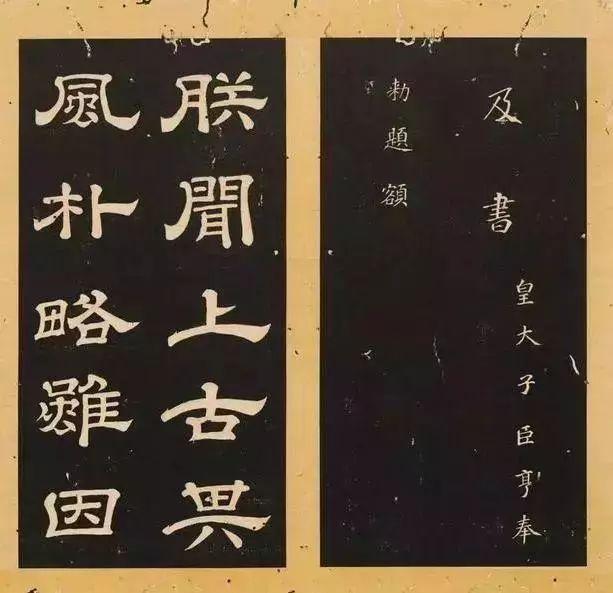 及書 皇大子臣亨奉
勅題額
朕聞上古其
風朴略雖因